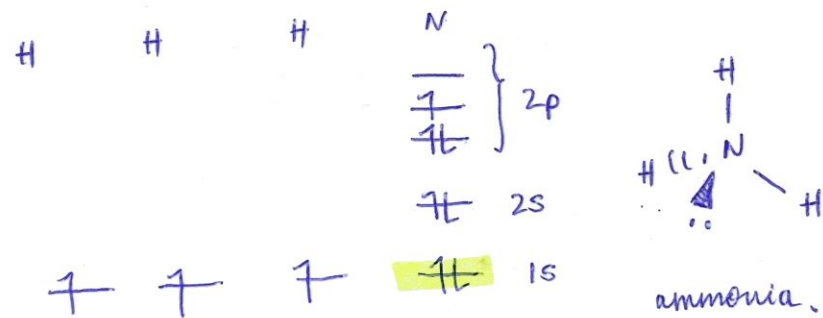 H H H N
2p
2s
1s
H
H N
H
ammonia.